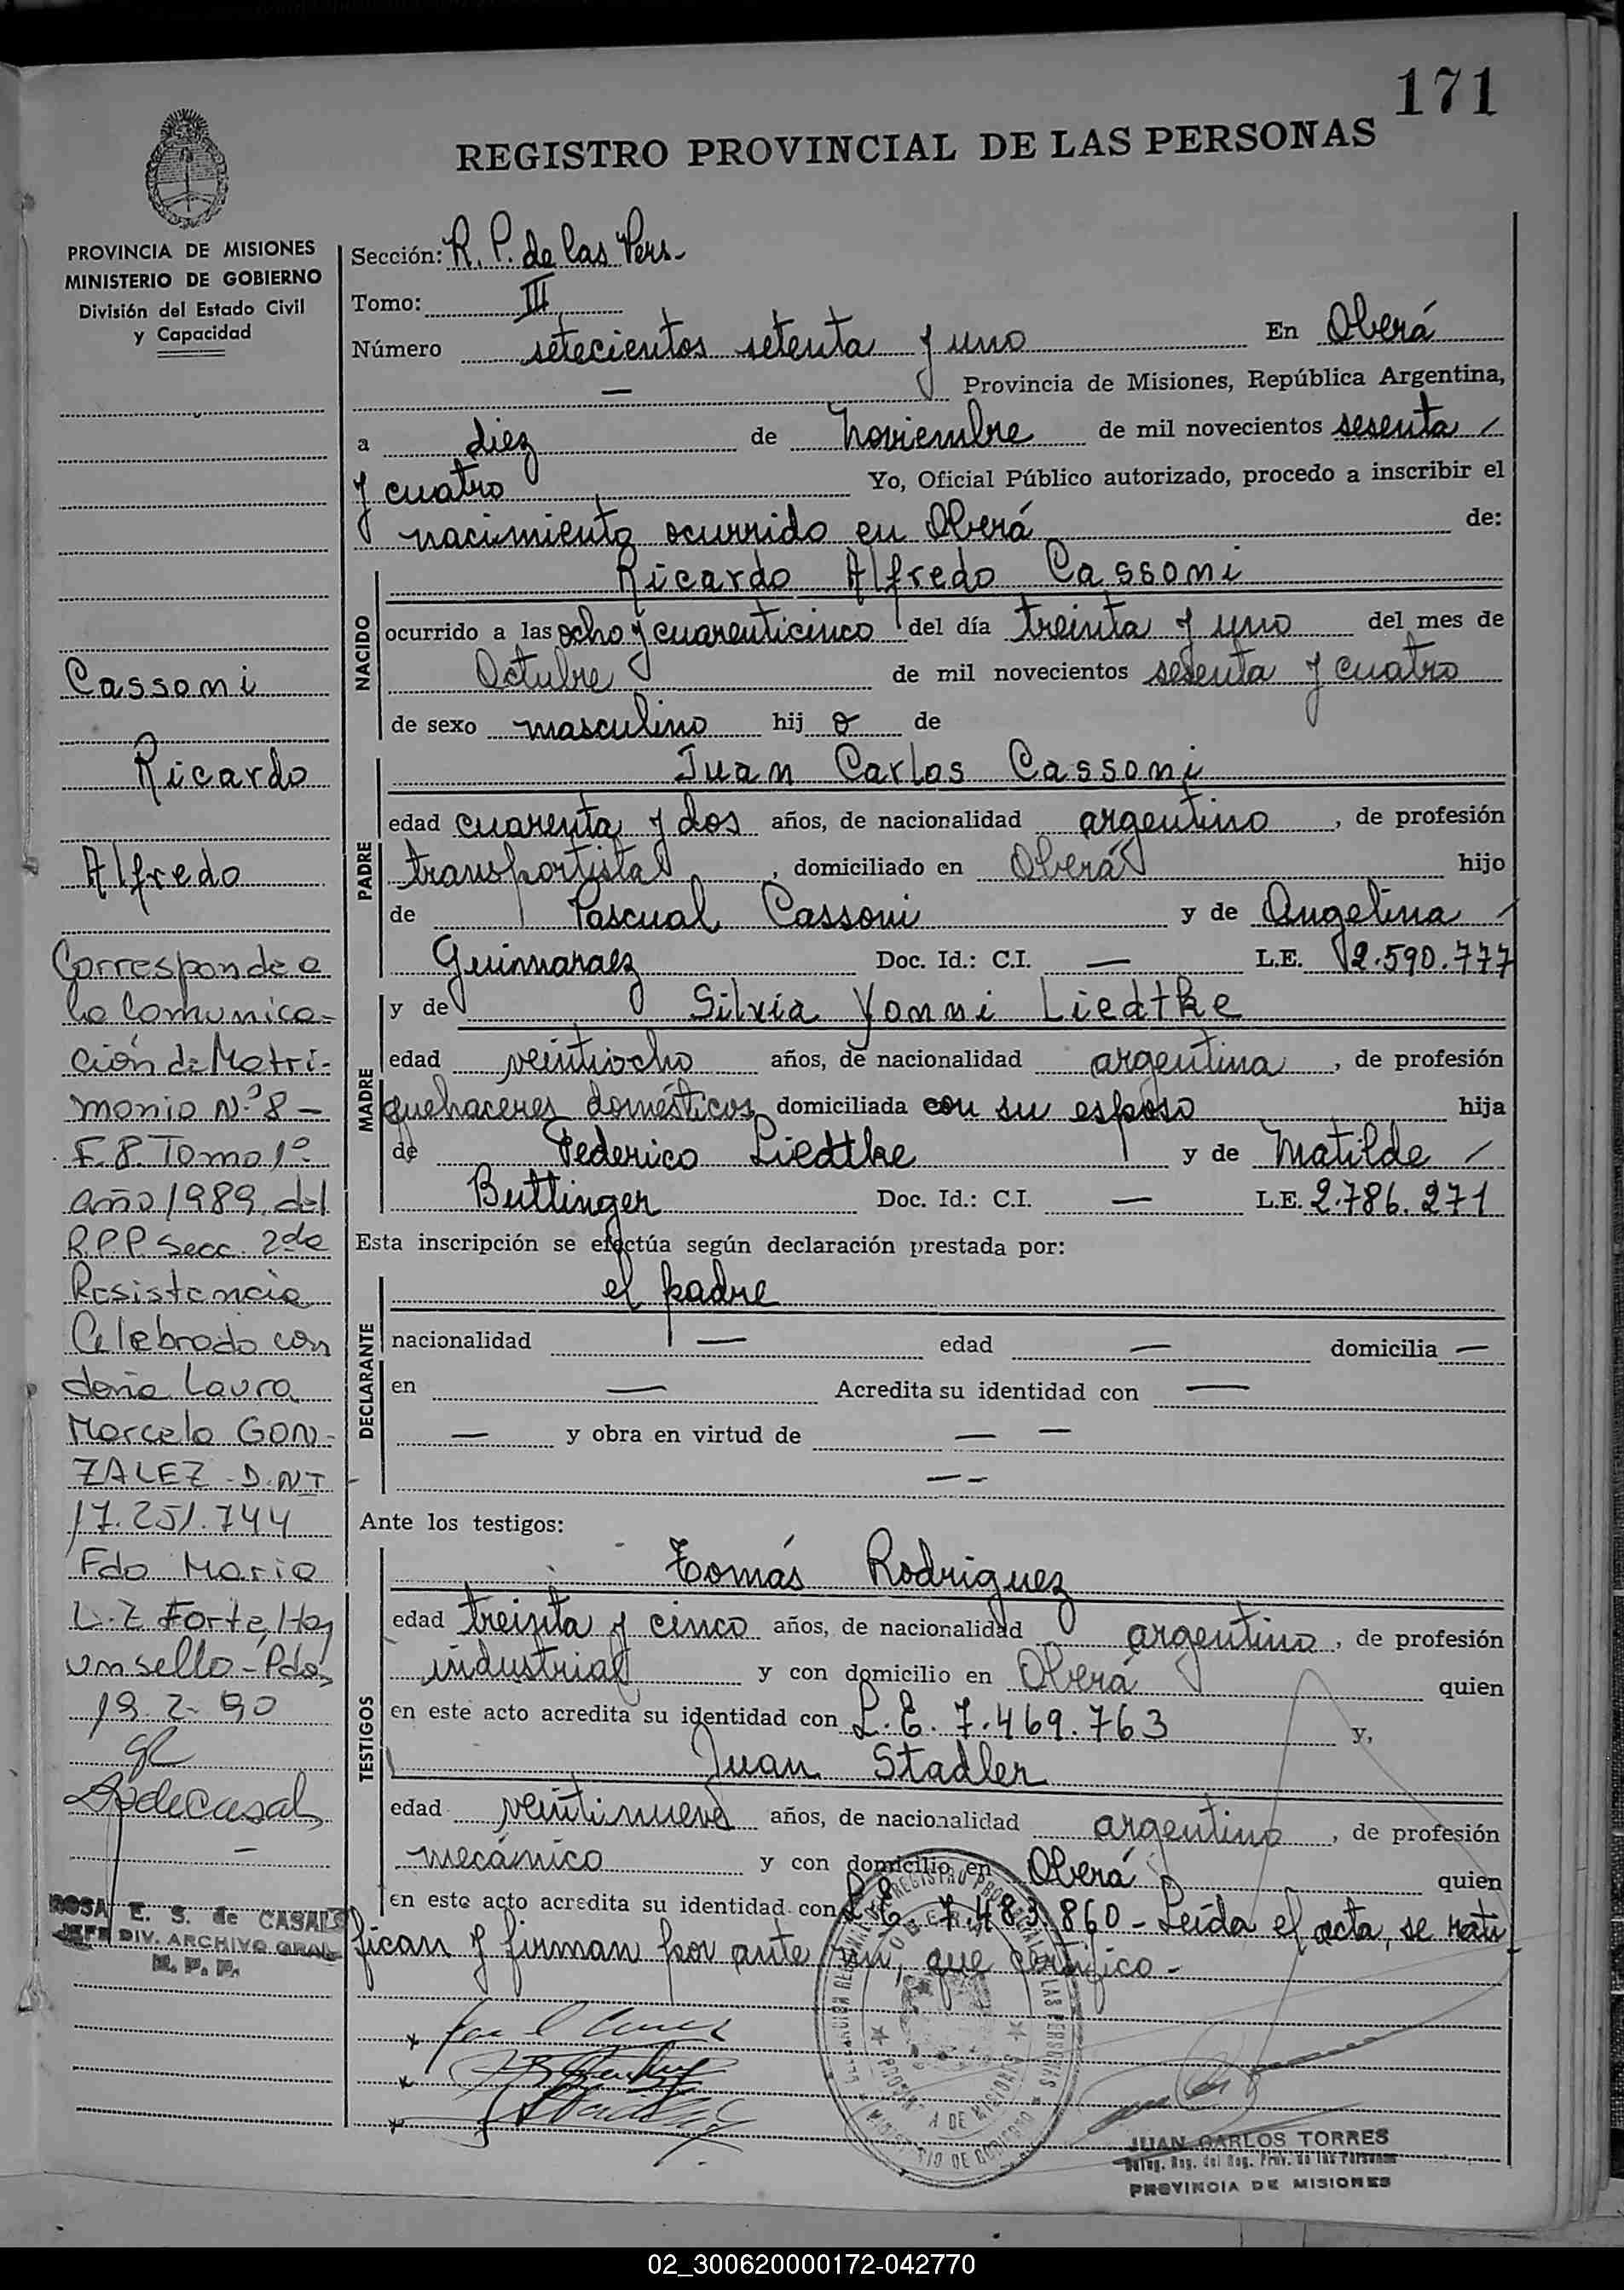 171
REGISTRO PROVINCIAL DE LAS PERSONAS
PROVINCIA DE MISIONES
MINISTERIO DE GOBIERNO
División del Estado Civil
y Capacidad
Cassoni
Ricardo
Alfredo
Corresponde a
la Comunica-
ción de Matri-
monio N.º 8 -
F. 8. Tomo 1º
año 1989. del
R.P.P. Secc. 2da
Resistencia
Celebrado con
doña Laura
Marcela GON-
ZALEZ - D.N.I
17.251.744
Fdo Maria
L. Z Forte, Hay
un sello - Pdas,
19-2-90
ROSA E. S. de CASAL
JEFE DIV. ARCHIVO GRAL
R. P. P.
Sección: R. P. de las Pers-
Tomo: III
Número setecientos setenta y uno En Oberá
— Provincia de Misiones, República Argentina,
a diez de Noviembre de mil novecientos sesenta
y cuatro Yo, Oficial Público autorizado, procedo a inscribir el
nacimiento ocurrido en Oberá de:
NACIDO
Ricardo Alfredo Cassoni
ocurrido a las ocho y cuarenticinco del día treinta y uno del mes de
Octubre de mil novecientos sesenta y cuatro
de sexo masculino hij o de
PADRE
Juan Carlos Cassoni
edad cuarenta y dos años, de nacionalidad argentino, de profesión
transportista, domiciliado en Oberá hijo
de Pascual Cassoni y de Angelina
Guimaraez Doc. Id.: C.I. — L.E. 2.590.777
MADRE
y de Silvia Yonni Liedtke
edad veintiocho años, de nacionalidad argentina, de profesión
quehaceres domésticos domiciliada con su esposo hija
de Federico Liedtke y de Matilde
Buttinger Doc. Id.: C.I. — L.E. 2.786.271
Esta inscripción se efectúa según declaración prestada por:
DECLARANTE
el padre
nacionalidad — edad — domicilia —
en — Acredita su identidad con —
— y obra en virtud de — —
— -
Ante los testigos:
TESTIGOS
Tomás Rodriguez
edad treinta y cinco años, de nacionalidad argentino, de profesión
industrial y con domicilio en Oberá quien
en este acto acredita su identidad con L. E. 7.469.763 y,
Juan Stadler
edad veintinueve años, de nacionalidad argentino, de profesión
mecánico y con domicilio en Oberá quien
en este acto acredita su identidad con L. E. 7.483.860 - Leída el acta, se rati
fican y firman por ante mi, que certifico -
JUAN CARLOS TORRES
Deleg. Reg. del Reg. Prov. de las Personas
PROVINCIA DE MISIONES
02_300620000172-042770